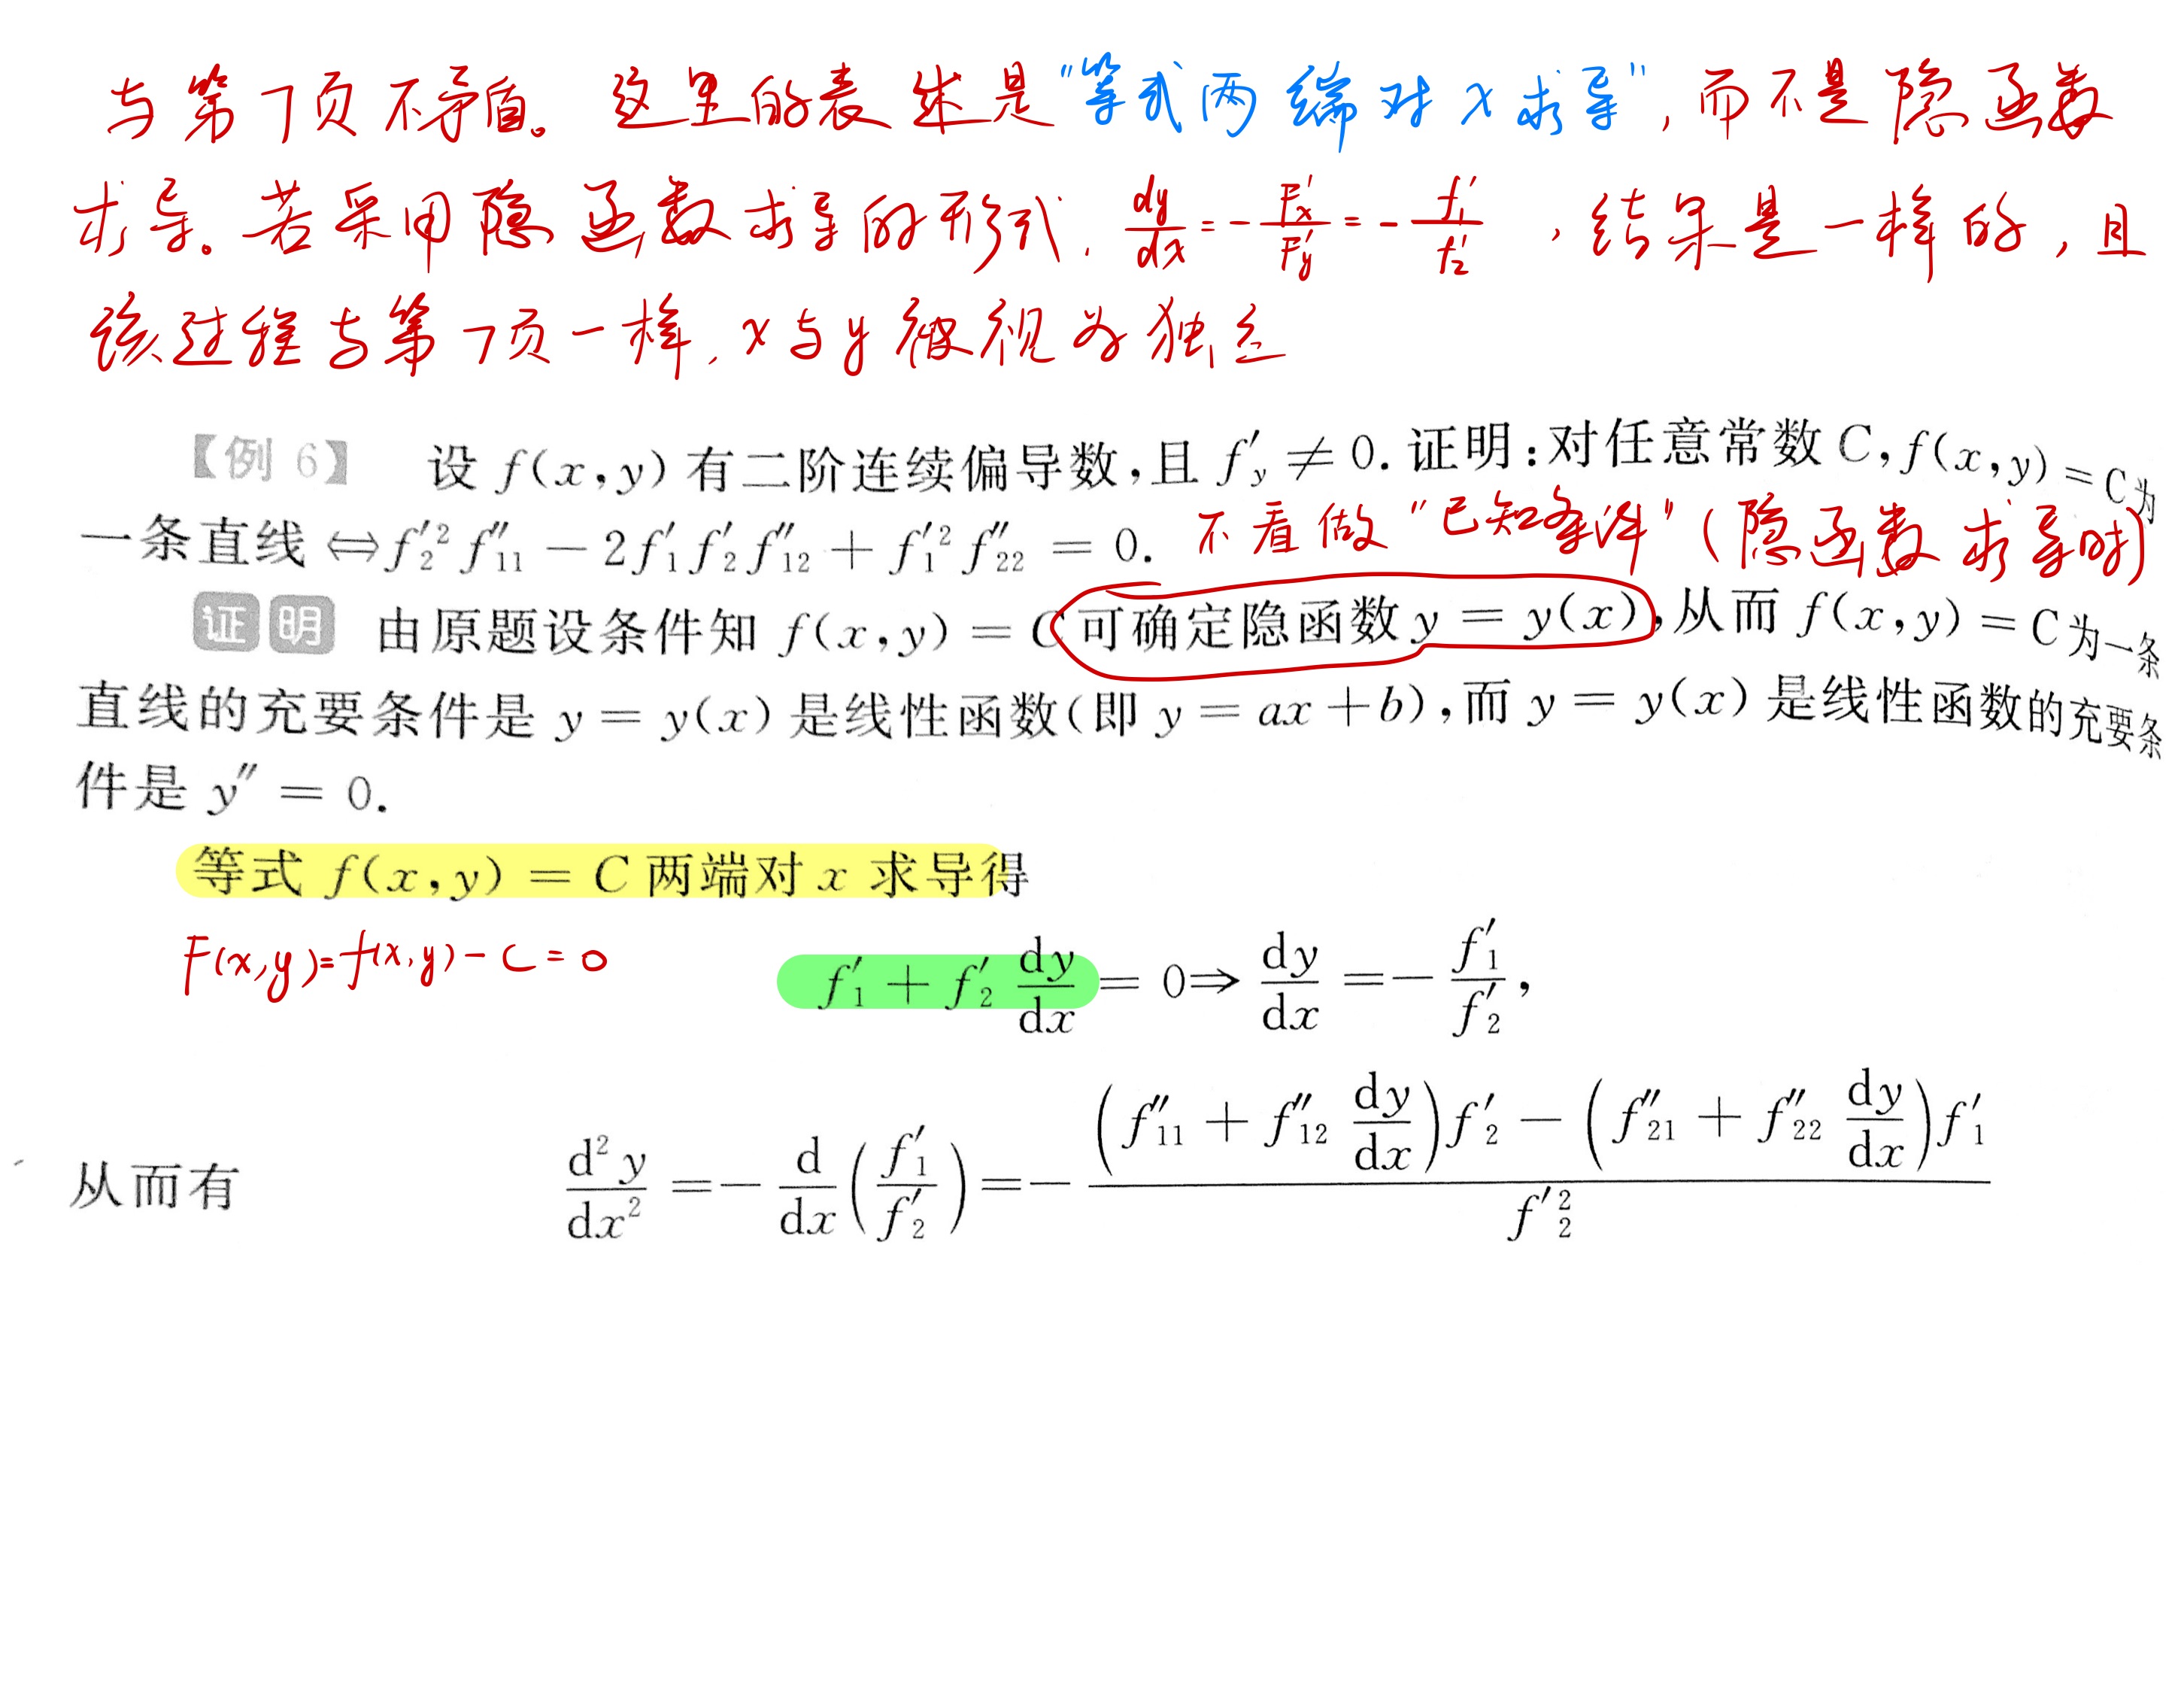 与第7页不矛盾。这里的表述是“等式两端对x求导”,而不是隐函数
求导。若采用隐函数求导的形式, dy/dx = -F'x/F'y = -f'1/f'2 ,结果是一样的,且
该过程与第7页一样,x与y被视为独立
【例 6】 设 f(x,y) 有二阶连续偏导数,且 f'y ≠ 0. 证明:对任意常数 C, f(x,y) = C 为
一条直线 ⇔ f'2² f''11 − 2f'1 f'2 f''12 + f'1² f''22 = 0. 不看做“已知条件”(隐函数求导时)
证明 由原题设条件知 f(x,y) = C 可确定隐函数 y = y(x),从而 f(x,y) = C 为一条
直线的充要条件是 y = y(x) 是线性函数(即 y = ax + b),而 y = y(x) 是线性函数的充要条
件是 y'' = 0.
等式 f(x,y) = C 两端对 x 求导得
F(x,y)=f(x,y)-C=0
f'1 + f'2 dy/dx = 0 ⇒ dy/dx = − f'1/f'2 ,
从而有 d²y/dx² = − d/dx (f'1/f'2) = − [(f''11 + f''12 dy/dx) f'2 − (f''21 + f''22 dy/dx) f'1] / f'2²